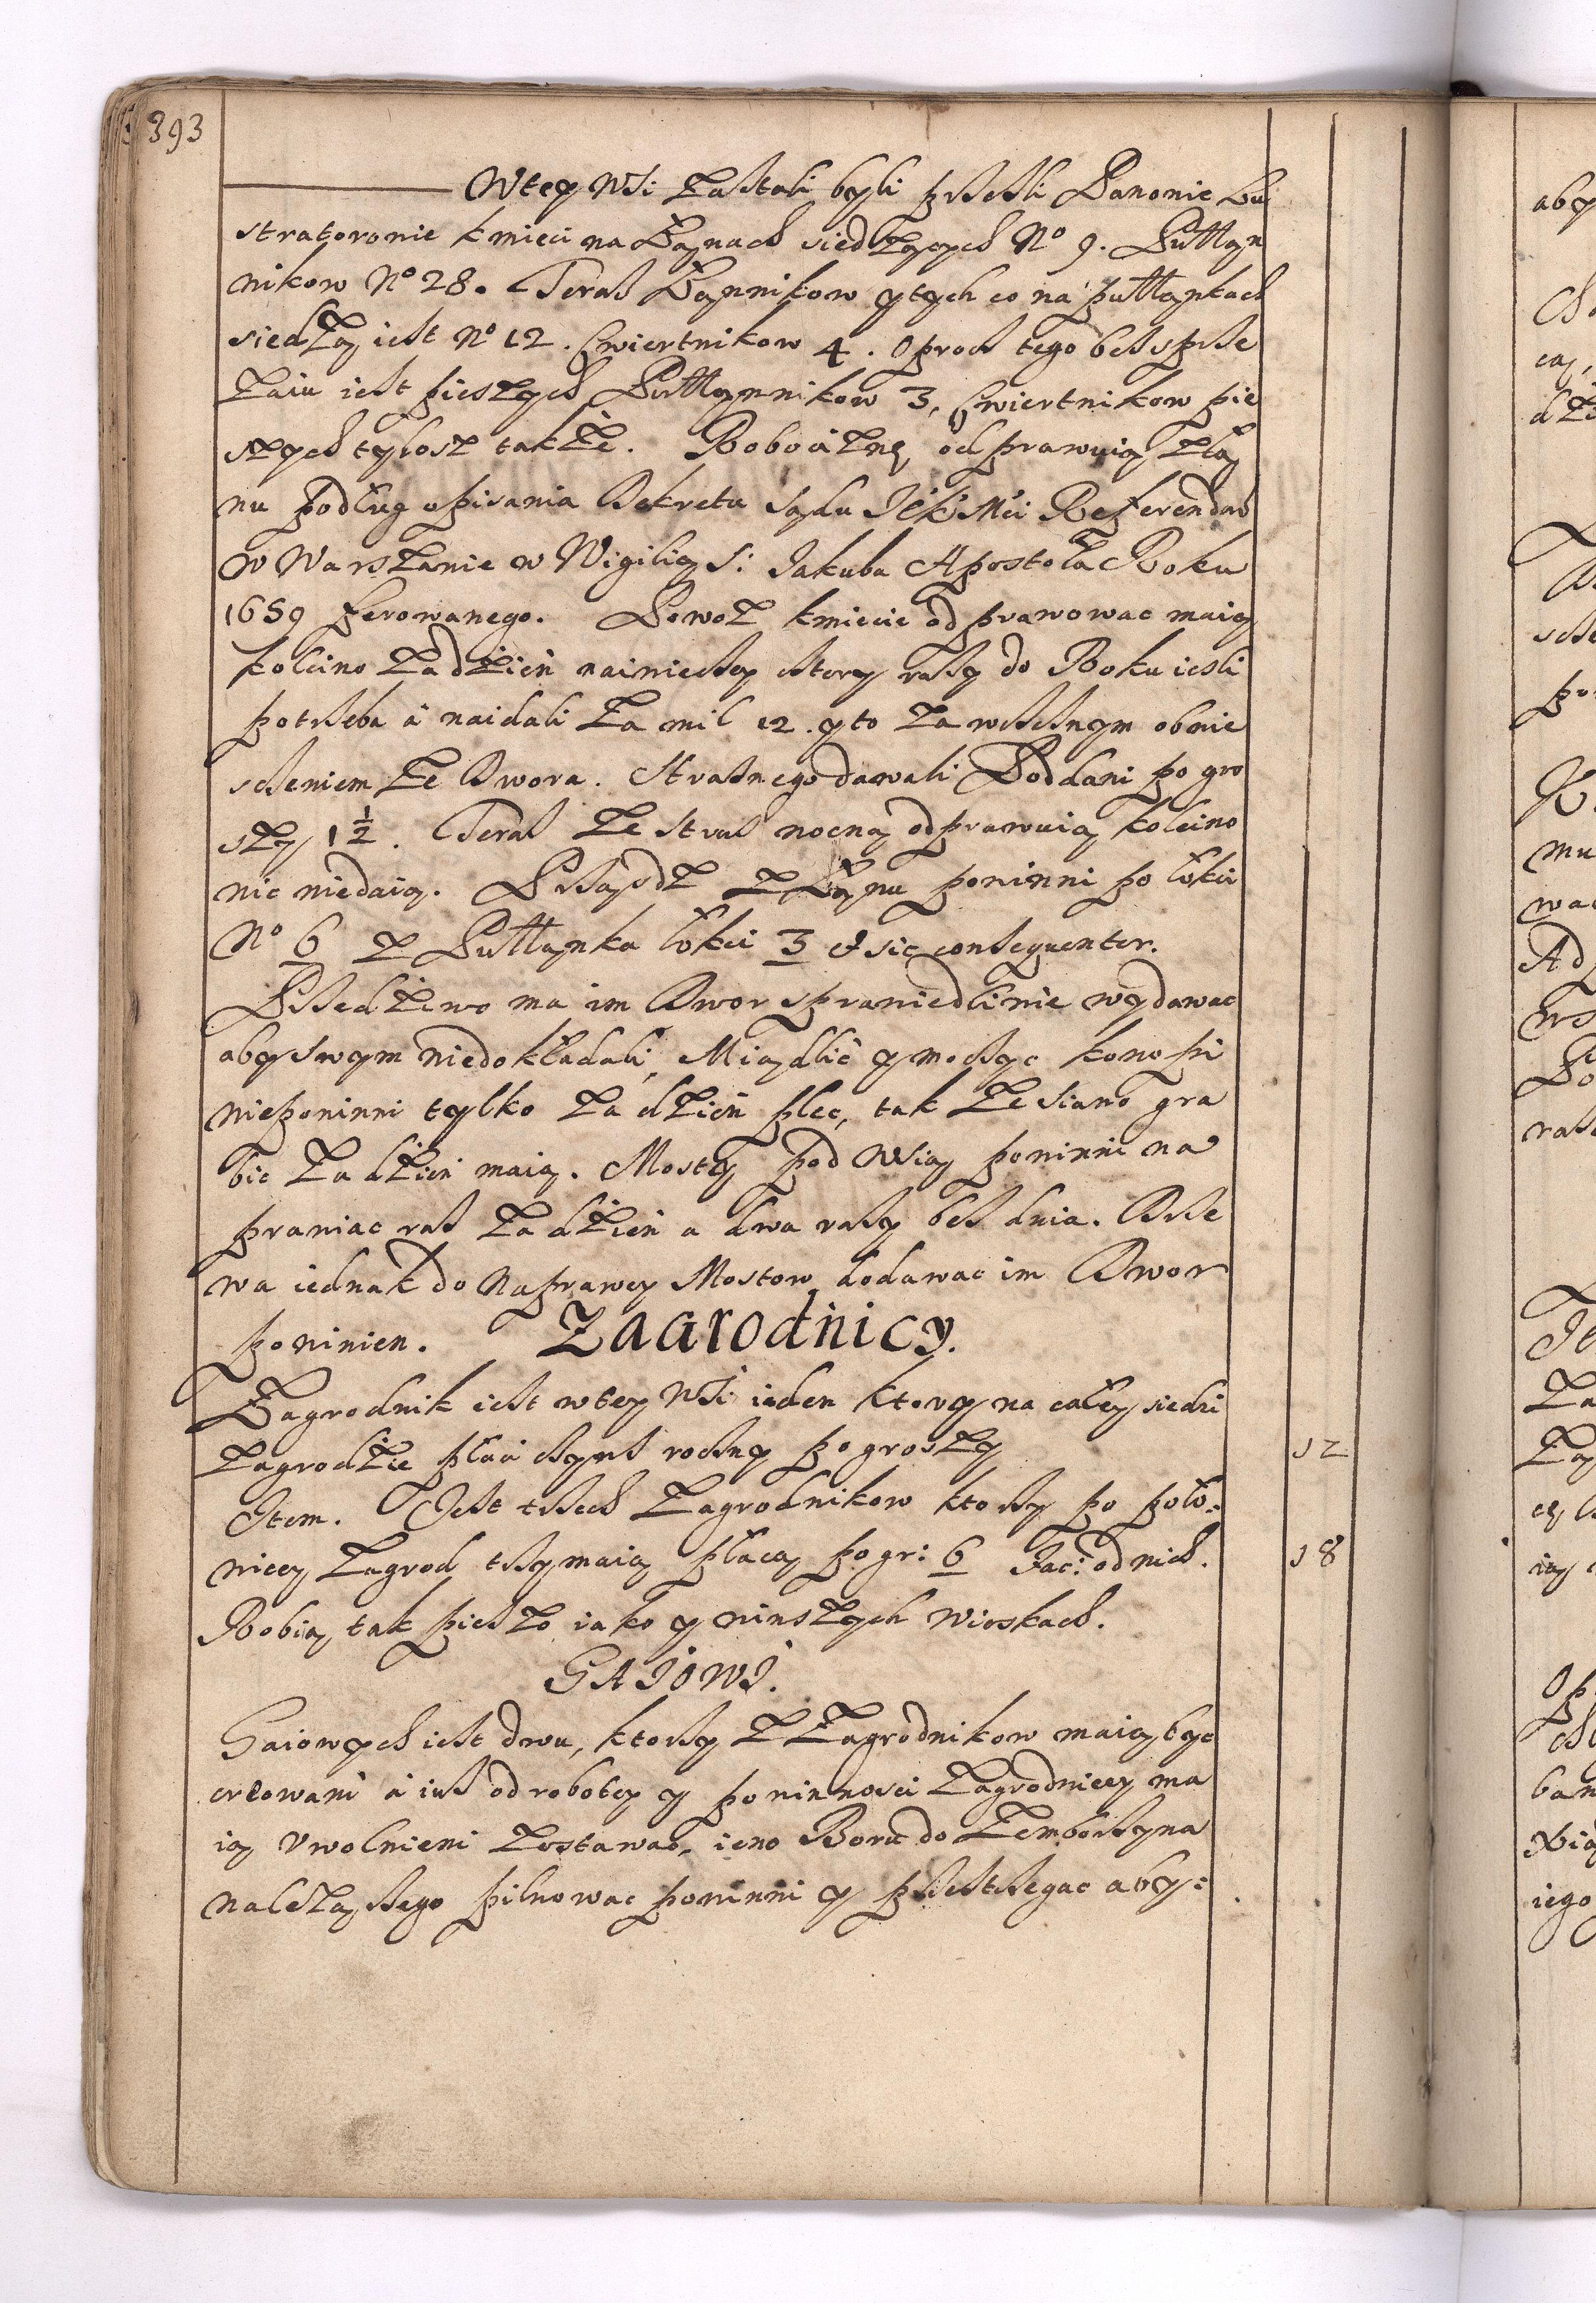 393
Wtey Wsi zastali byli przeszli Panowie Lu
stratorowie kmieci na Łanach siedzących No 9. Pułłan
nikow No 28. Teraz Łannikow y tych co na pułłankach
siedzą iest No 12. Cwiertnikow 4. Oprocz tego bes sprzę
zaiu iest pieszych Pułłannikow 3, Cwiertnikow pie
szych tylosz takze. Robociznę odprawuią z ła
nu podług opisania Dekretu Sądu JeKMci Referendar
w Warszawie w Wigilią S: Jakuba Apostoła Roku
1659 ferowanego. Powoz kmiecie odprawowac maią
koleino za dzień nainiecey cztery razy do Roku iesli
potrzeba á naidali za mil 12. y to za wczesnym obwie
sczeniem ze Dwora. Stroznego dawali Poddani po gro
szy 1½. Teraz ze straz nocną odprawuią koleino
nic niedaią. Prząndz z Łanu powinni po łokci
No 6 z Pułłanka łokci 3 et sic consequenter.
Przedziwo ma im Dwor sprawiedliwie wydawac
aby swym niedokładali, Miądlić y moczyc konopi
niepowinni tylko za dzień plec, tak ze Siano gra
bic za dzień maią. Mosty pod Wsią powinni na
prawiac raz za dzień a dwa razy bez dnia. Drze
wa iednak do Naprawy Mostow dodawac im Dwor
powinien. Zagrodnicy.
Zagrodnik iest wtey Wsi ieden ktory na całey siedzi
zagrodzie płaci czynsz roczny po groszy 12
Item. Jest trzech zagrodnikow ktorzy po poło=
nicy zagrod trzymaią płacą po gr: 6 Fac: od nich. 18
Robią tak pieszo iako y winszych wioskach.
GAJOWI.
Gaiowych iest dwu, ktorzy z Zagrodnikow maią byc
erzowani á iuz od roboty y powinnosci zagrodnicy ma
ią uwolnieni zostawac, ieno Boru do Zemborzyna
nalezączego pilnowac powinni y przestrzegac aby=